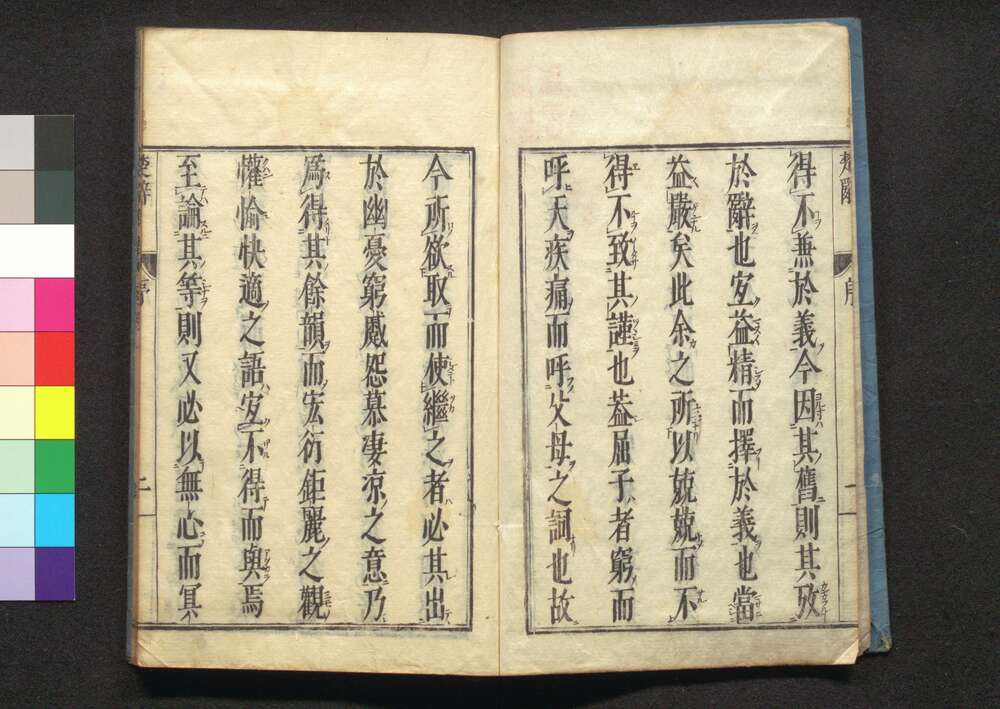 得不兼於義今因其舊則其攷
於辭也宜益精而擇於義也當
益嚴矣此余之所以兢兢而不
得不致其謹也蓋屈子者窮而
呼天疾痛而呼父母之詞也故
今所欲取而使繼之者必其出
於幽憂窮蹙怨慕凄凉之意乃
爲得其餘韻而宏衍鉅麗之觀
懽愉快適之語宜不得而與焉
至論其等則又必以無心而冥
楚辭
序
二